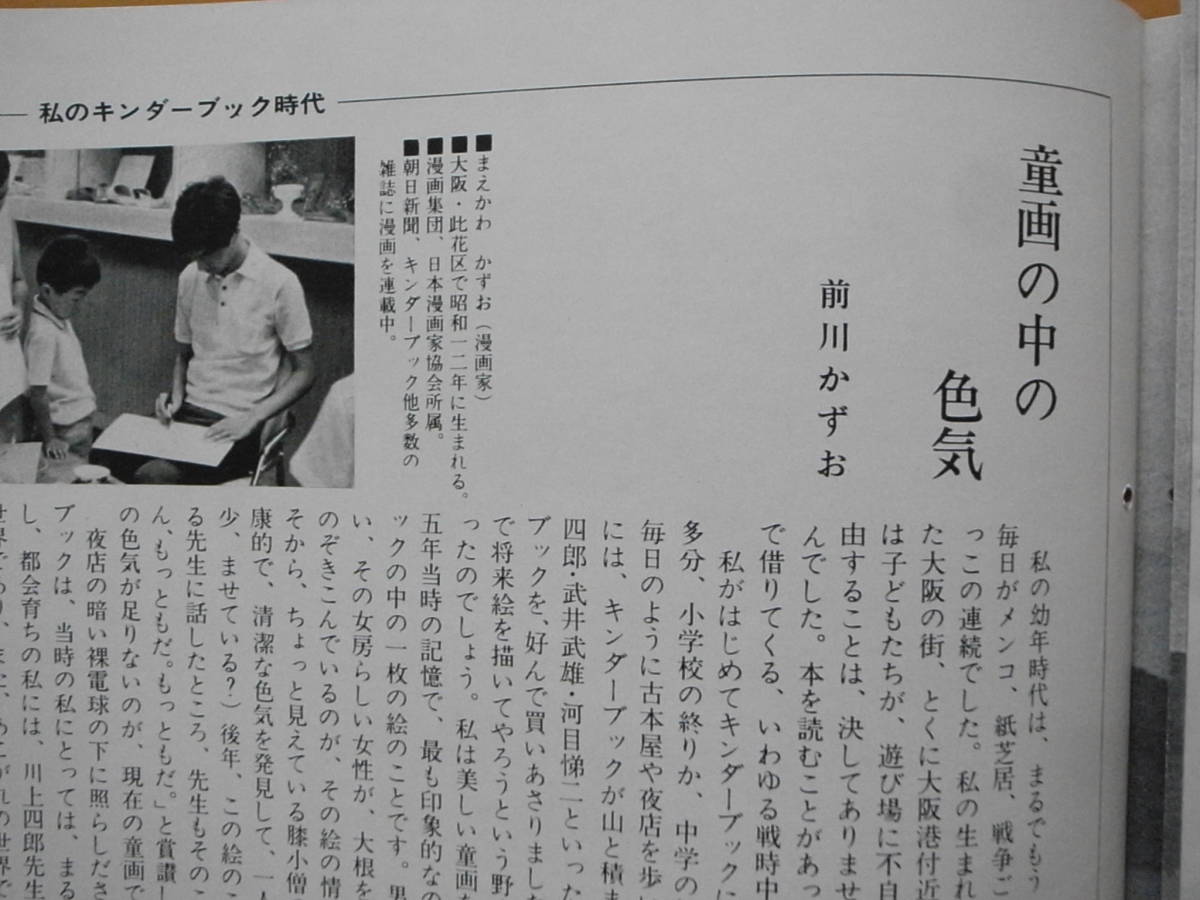 私のキンダーブック時代
童画の中の
色気
前川かずお
■まえかわ かずお（漫画家）
■大阪・此花区で昭和一二年に生まれる。
■漫画集団、日本漫画家協会所属。
■朝日新聞、キンダーブック他多数の
雑誌に漫画を連載中。
私の幼年時代は、まるでもう
毎日がメンコ、紙芝居、戦争ご
っこの連続でした。私の生まれ
た大阪の街、とくに大阪港付近
は子どもたちが、遊び場に不自
由することは、決してありませ
んでした。本を読むことがあっ
で借りてくる、いわゆる戦時中
私がはじめてキンダーブックに
多分、小学校の終りか、中学の
毎日のように古本屋や夜店を歩
には、キンダーブックが山と積ま
四郎・武井武雄・河目悌二といった
ブックを、好んで買いあさりました
で将来絵を描いてやろうという野
ったのでしょう。私は美しい童画
五年当時の記憶で、最も印象的な
ックの中の一枚の絵のことです。男
い、その女房らしい女性が、大根を
のぞきこんでいるのが、その絵の情
そから、ちょっと見えている膝小僧
康的で、清潔な色気を発見して、一人
少、ませている？）後年、この絵のこ
る先生に話したところ、先生もそのこ
ん、もっともだ。もっともだ。」と賞讃し
の色気が足りないのが、現在の童画で
夜店の暗い裸電球の下に照らしださ
ブックは、当時の私にとっては、まる
し、都会育ちの私には、川上四郎先生
世界であり、また、あこがれの世界で